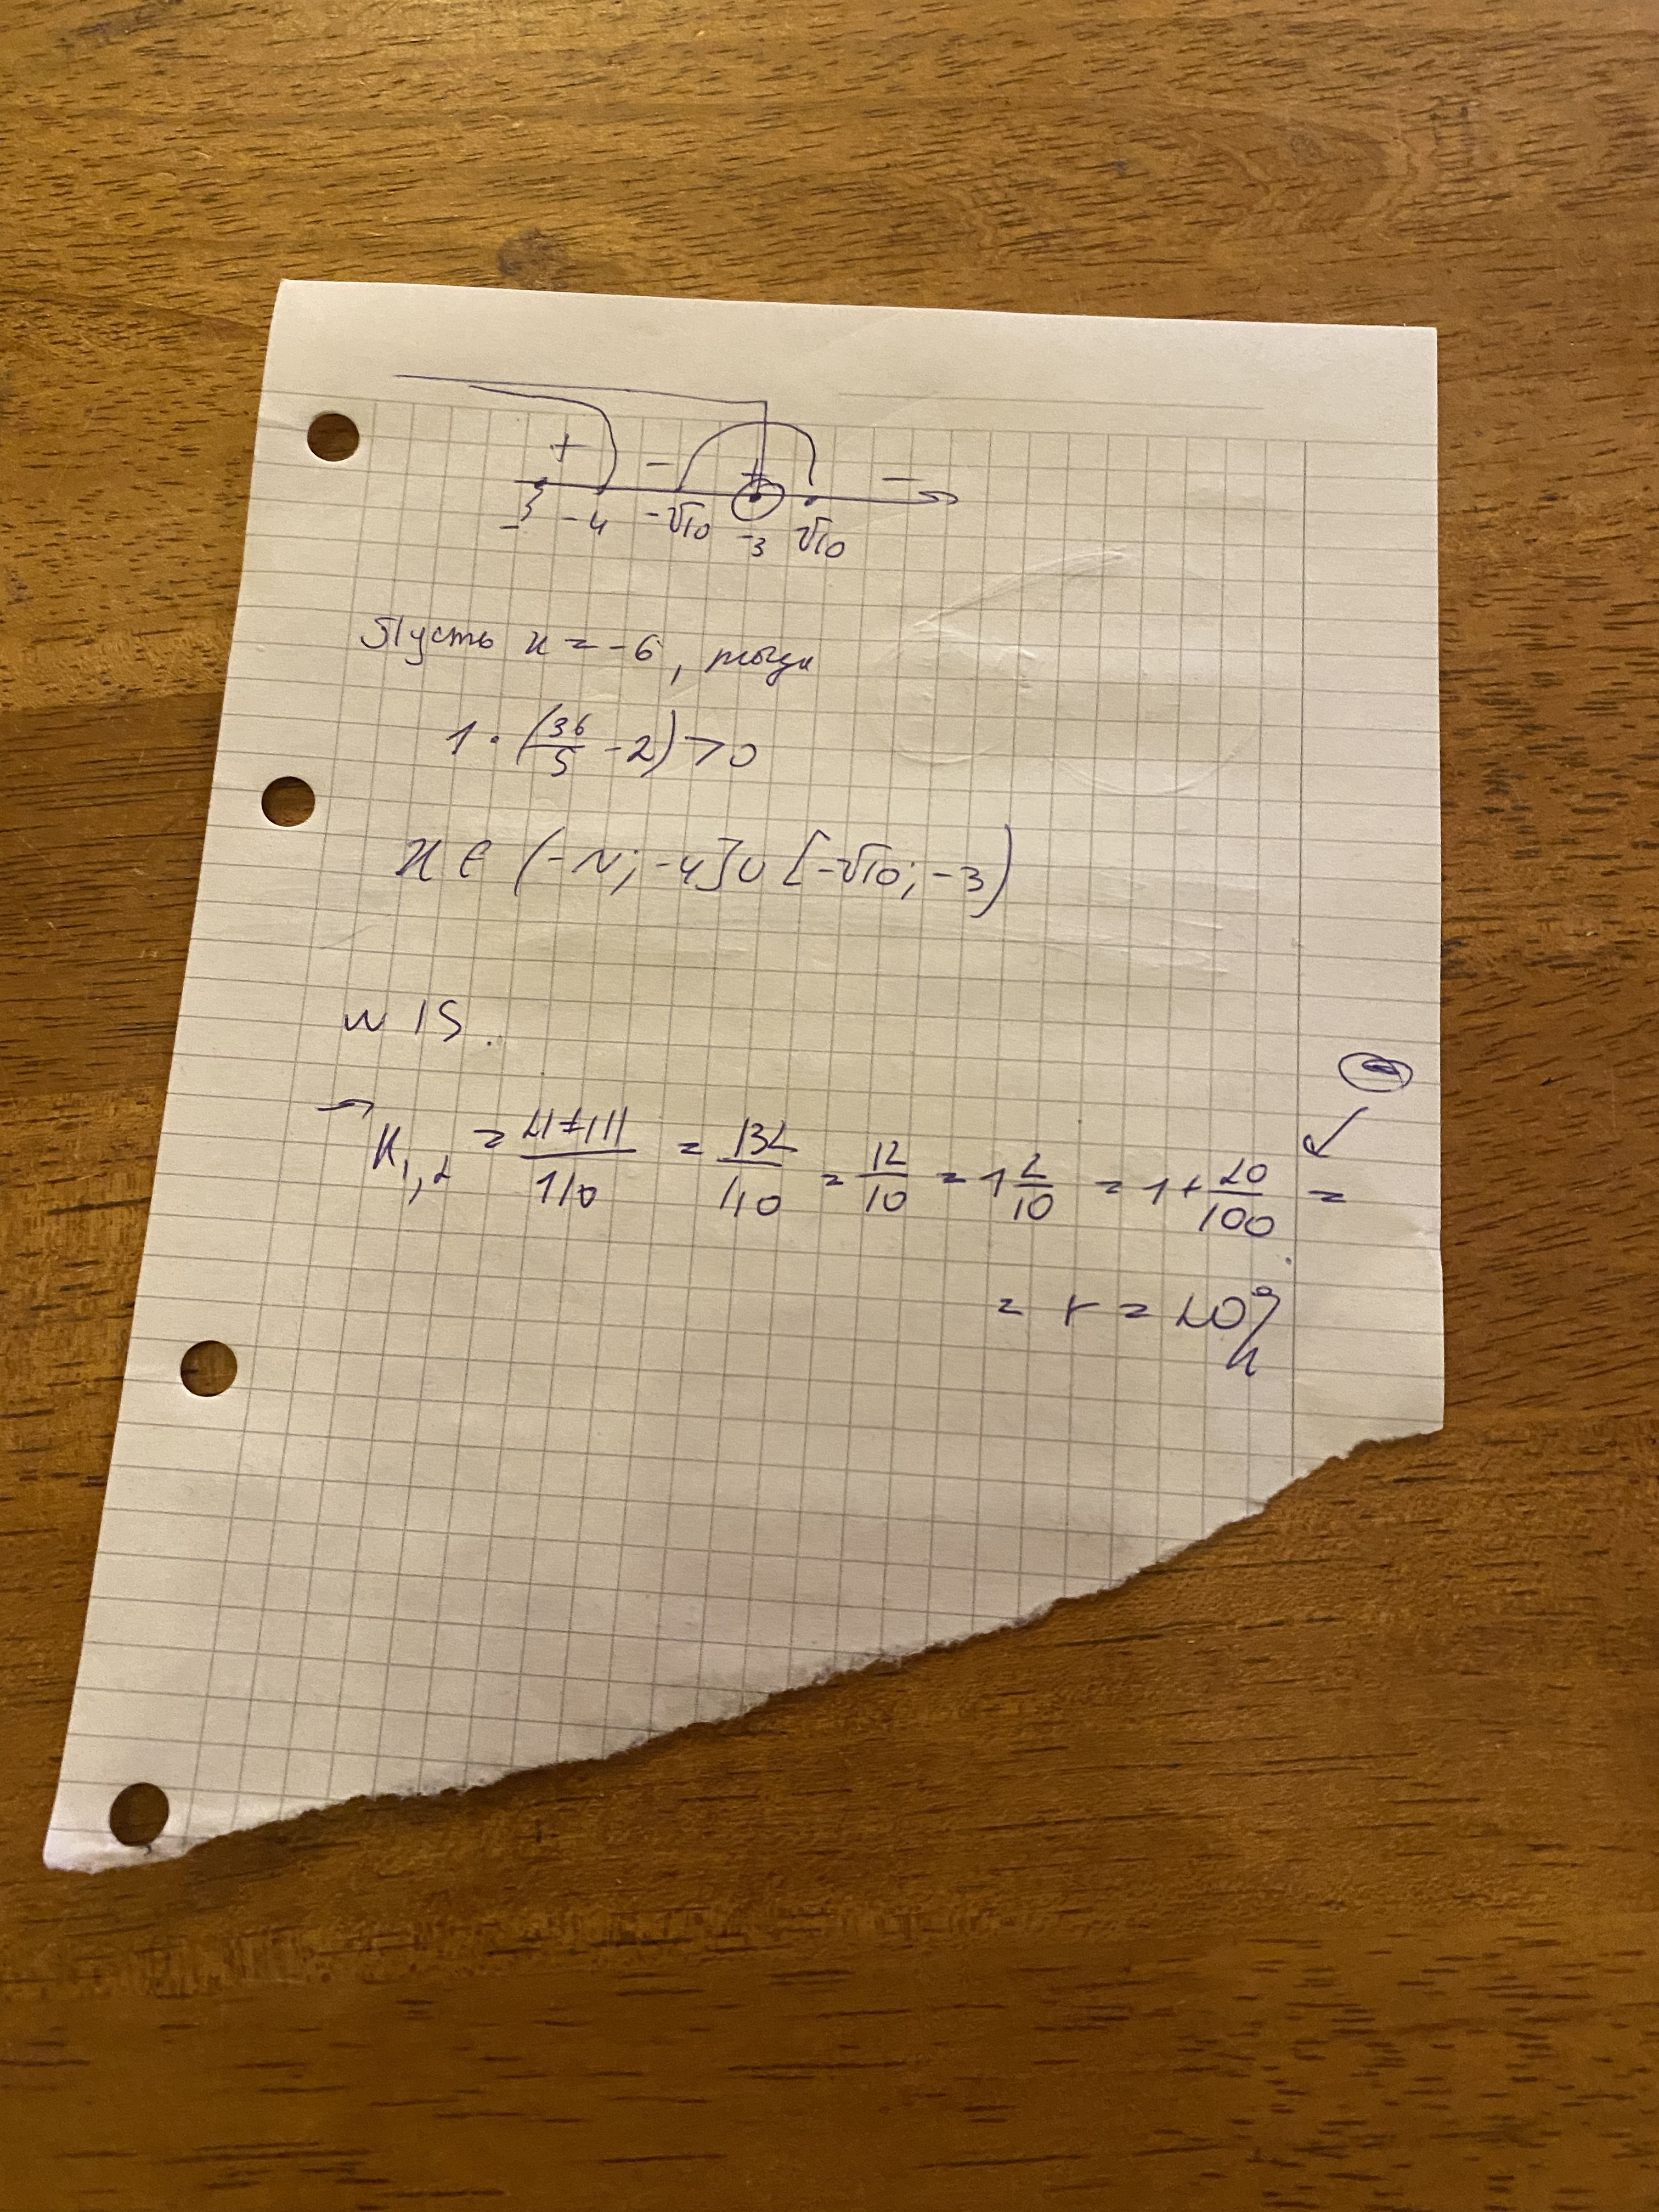 + - + -
-5 -4 -√10 -3 √10
Пусть x = -6, тогда
1 · (36/5 - 2) > 0
x ∈ (-∞; -4] ∪ [-√10; -3)
№ 15.
→ k₁,₂ = 21±111/110 = 132/110 = 12/10 = 1 2/10 = 1 + 20/100 =
= r = 20%